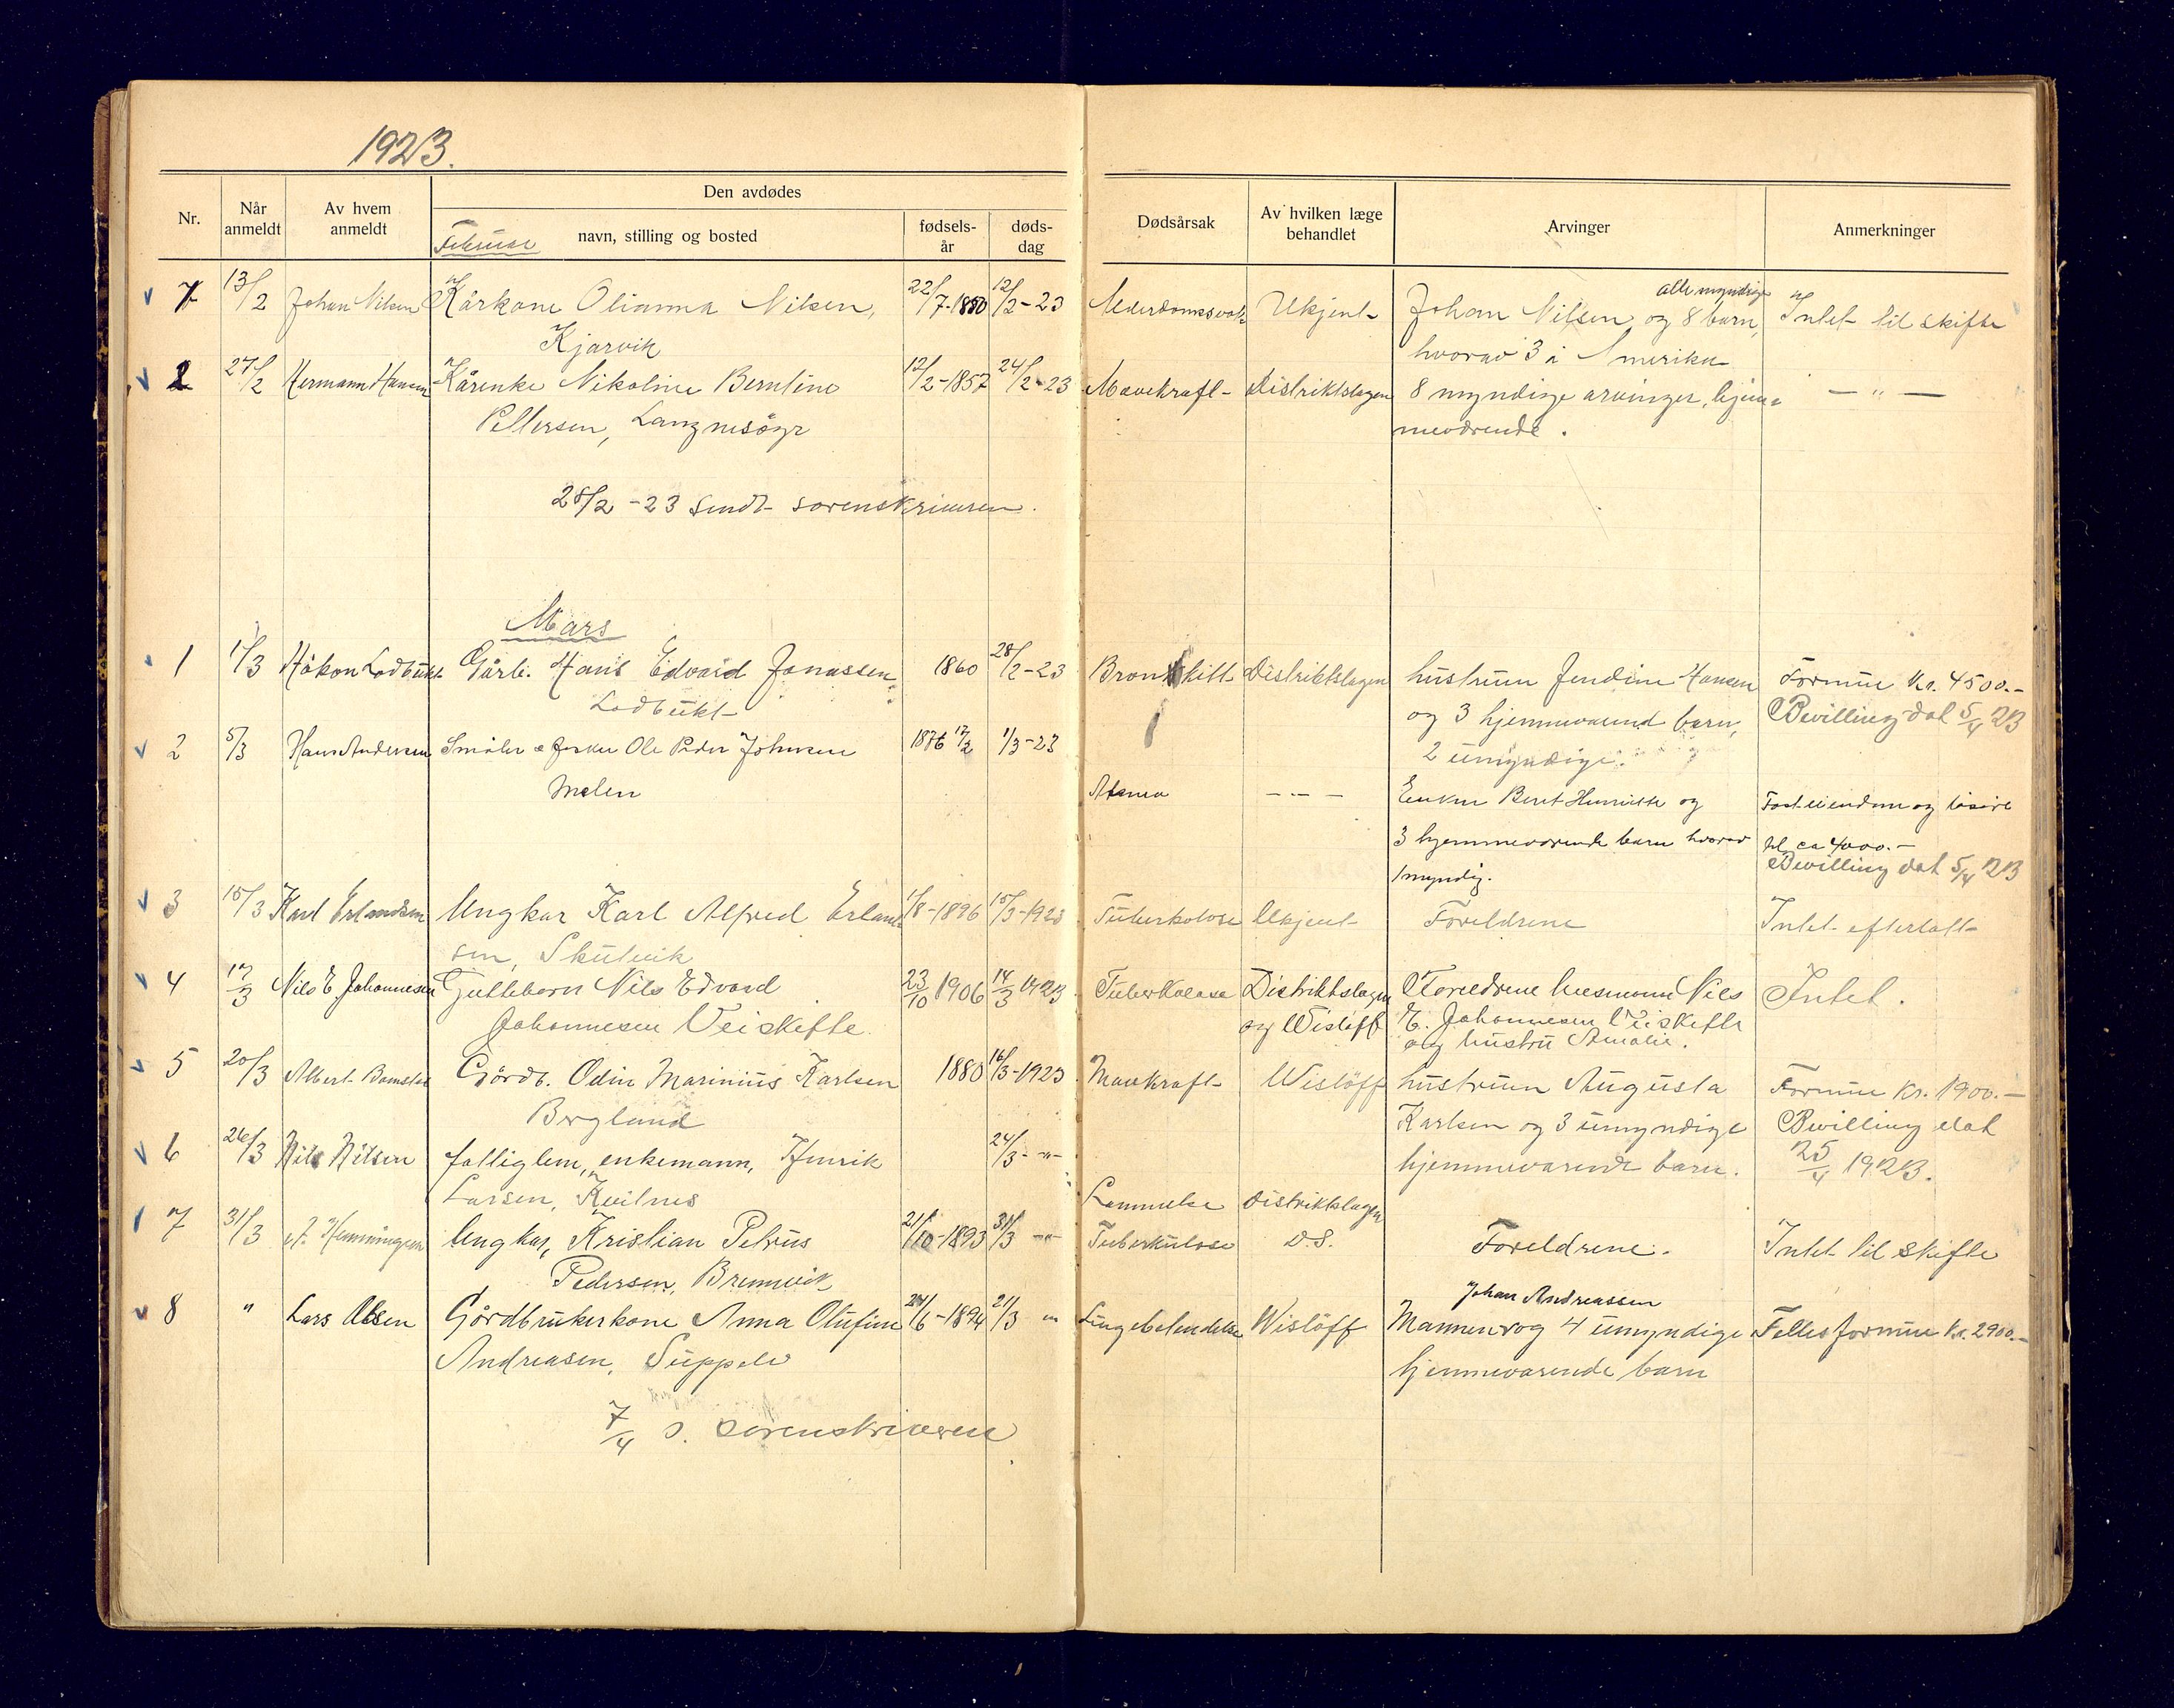 1923.
Nr.
Når anmeldt
Av hvem anmeldt
Den avdødes
Februar
navn, stilling og bosted
fødsels-år
døds-dag
Dødsårsak
Av hvilken læge behandlet
Arvinger
Anmerkninger
1 13/2 Johan Nilsen Kårkone Olianna Nilsen, 22/7-1850 12/2-23 Ukjent alle myndige
Johan Nilsen og 8 barn, Intet til skifte
Kjørvik hvorav 3 i Amerika
2 27/2 Hermann Hansen Kårenke Nikoline Berntine 12/2-1857 24/2-23 Mavekraft Distriktslægen 8 myndige arvinger, hjem= — " —
Pettersen, Langnesøyr meværende.
28/2 -23 sendt sorenskriveren.
Mars
1 1/3 Håkon Lodbukt Gårb. Hans Edvard Jonassen 1860 28/2-23 Bronkitt Distriktslægen hustruen Jendine Hansen Formue kr. 4500.-
Lodbukt og 3 hjemmeværend barn, Bevilling dat 5/4 23
2 5/3 Hans Andersen Småbr & fisker Ole Peder Johnsen 1876 12/2 1/3-23 2 umyndige.
Melen — " — Enken Beret Henriette og Fast eiendom og løsøre
3 hjemmeværende barn hvorav til ca 4000.-
1 myndig. Bevilling dat 5/4 23
3 15/3 Karl Erlandsen Ungkar Karl Alfred Erland= 1/8-1896 15/3-1923 Tuberkolose Ukjent Foreldrene Intet efterlatt
sen, Skutvik
4 17/3 Nils E Johannesen Guttebarn Nils Edvard 23/10 1906 14/3 1923 Tuberkolose Distriktslægen Foreldrene husmann Nils Intet.
Johannesen Veiskefte. og Wisløff E. Johannesen Veiskefte
og hustru Amalie.
5 20/3 Albert Gårdb. Odin Marinius Karlsen 1880 16/3-1923 Mavekraft Wisløff hustruen Augusta Formue kr. 1900.-
Bergland Karlsen og 3 umyndige Bevilling dat
6 26/3 Nils Nilsen fattiglem, enkemann, Henrik 24/3-"- hjemmeværende barn. 25/4 1923.
Larsen, Kvitnes Lammelse Distriktslægen
7 31/3 A. Henningsen Ungkar, Kristian Petrus 21/10-1893 31/3 -"- Tuberkulose D.S. Foreldrene. Intet til skifte
Pedersen, Brennvik
Johan Andreassen
8 " Lars Olsen Gårdbrukerkone Anna Olufine 24/6-1894 21/3 " Lungebetendelse Wisløff Mannen og 4 umyndige Felles formue kr. 2900.-
Andreasen, hjemmeværende barn
7/4 s. sorenskriveren